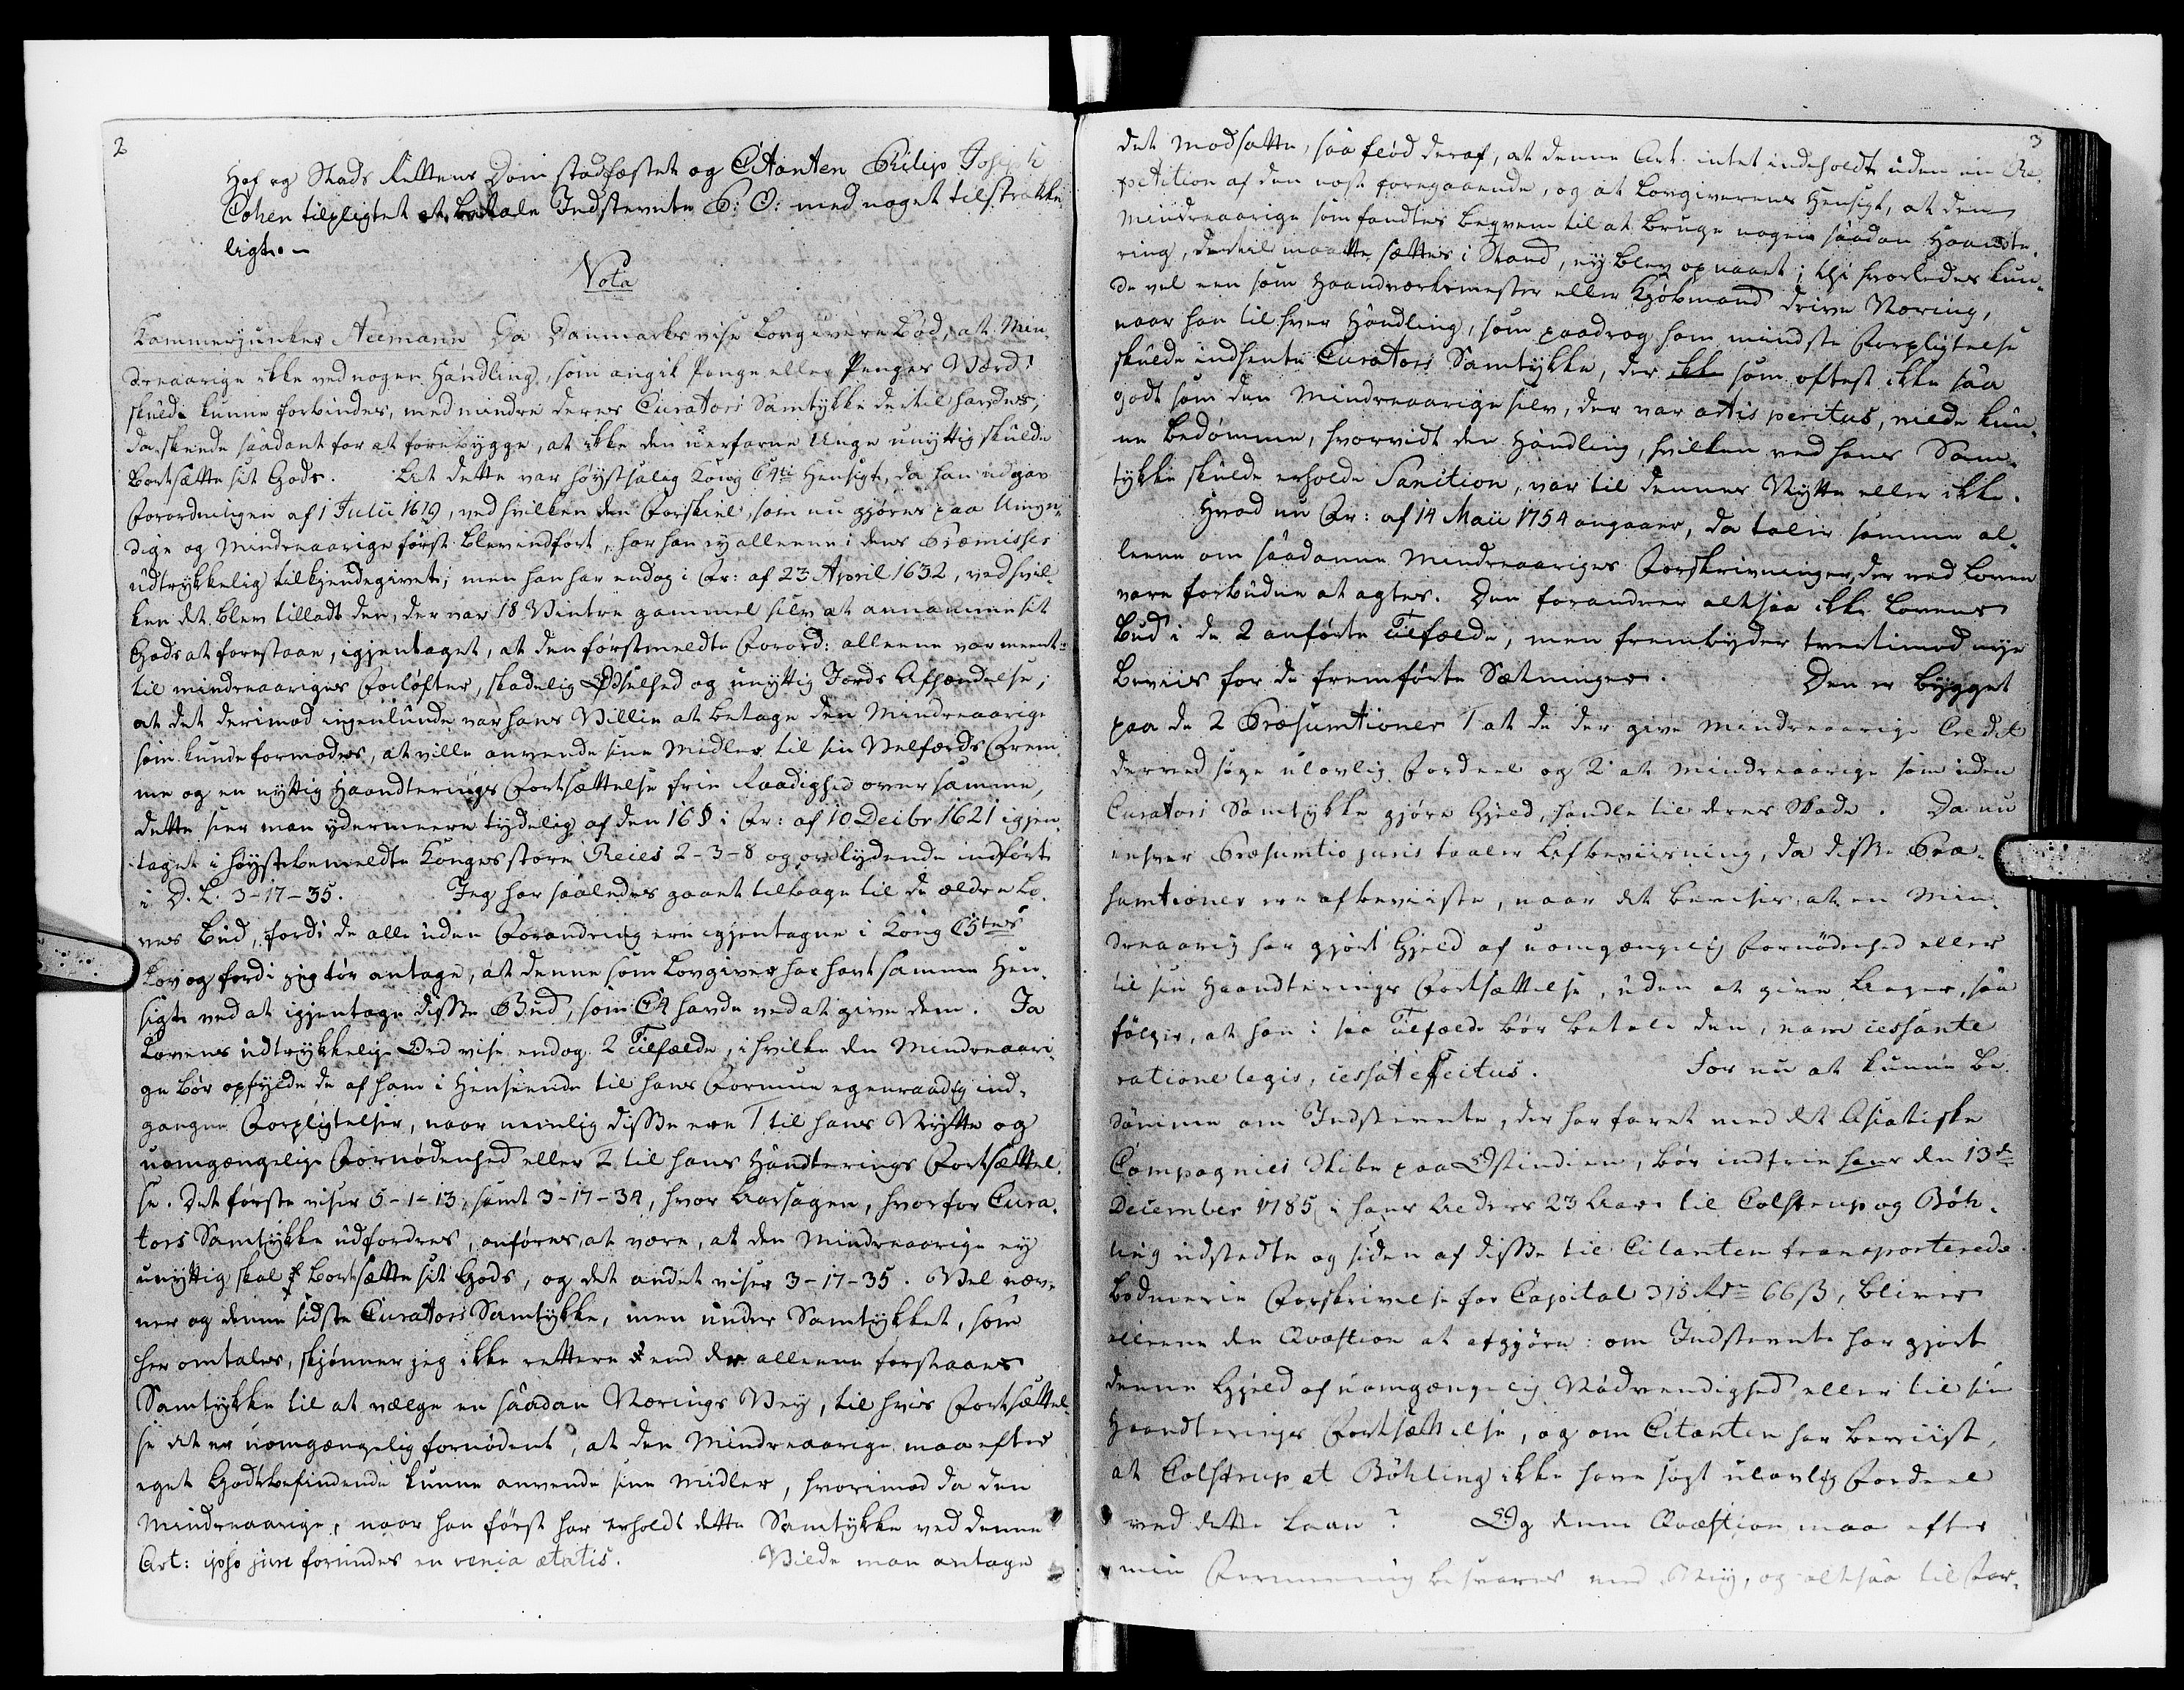 2
Hof og Stads Rettens Dom stadfæstet og Citanten Philip Joseph
Cohen tilpligtet at betale Indstevnte S: O: med noget tilstrække-
ligt.-
Vota
Kammerjunker Neemann Da Danmarks vise Lovgivere bød, at Min-
dreaarige ikke ved nogen Handling, som angik Penge eller Penges Værd
skulde kunne forbindes, med mindre deres Curators Samtykke dertil havdes,
da skeede saadant for at forebygge, at ikke den uerfarne Unge unyttig skulde
bortsætte sit Gods. At dette var høystsalig Kong C4ti Hensigt, da han udgav
Forordningen af 1 Julii 1619, ved hvilken den Forskiel, som nu gjøres paa Umyn-
dige og Mindreaarige først blev indført, har han ey alleene i dens Præmisser
udtrykkelig tilkjendegivet; men han har endog i Fr: af 23 April 1632, ved hvil-
ken det blev tilladt den, der var 18 Vintre gammel selv at annamme sit
Gods at forestaae, igjentaget, at den førstmeldte Forord: alleene var meent
til mindreaariges Forløfter, skadelig Ødselhed og unyttig Jords Afhændelse;
at det derimod ingenlunde var hans Villie at betage den Mindreaarige
som kunde formodes, at ville anvende sine Midler til sin Velfærds Frem-
me og en nyttig Haandterings Fortsættelse frie Raadighed over samme,
dette seer man ydermeere tydelig af den 16 § i Fr: af 10 Decibr 1621 igjen-
taget i høystbemeldte Konges store Reces 2-3-8 og ordlydende indført
i D. L. 3-17-35. Jeg har saaledes gaaet tilbage til de ældre Lo-
ves Bud, fordi de alle uden Forandring ere igjentagne i Kong C5tes
Lov og fordi jeg tør antage, at denne som Lovgiver har havt samme Hen-
sigt ved at igjentage disse Bud, som C4 havde ved at give dem. Ja
Lovens udtrykkelige Ord vise endog 2 Tilfælde, i hvilke den Mindreaari-
ge bør opfylde de af ham i Henseende til hans Formue egenraadig ind-
gangne Forpligtelser, naar nemlig disse ere 1 til hans Nytte og
uomgængelige Fornødenhed eller 2 til hans Handterings Fortsættel-
se. Det første viser 5-1-13, samt 3-17-34, hvor Aarsagen, hvorfor Cura-
tors Samtykke udfordres, anføres at være, at den Mindreaarige ey
unyttig skal bortsætte sit Gods, og det andet viser 3-17-35. Vel næv-
ner og denne sidste Curators Samtykke, men under Samtykket, som
her omtales, skjønner jeg ikke rettere end der alleene forstaaes
Samtykke til at vælge en saadan Nærings Vey, til hvis Fortsættel-
se det er uomgængelig fornødent, at den Mindreaarige maa efter
eget Godtbefindende kunne anvende sine Midler, hvorimod da den
Mindreaarige, naar han først har erholdt dette Samtykke ved denne
Art: ipso jure forundes en venia ætatis. Vilde man antage
3
det modsatte, saa flød deraf, at denne Art. intet indeholdt uden en Re-
petition af den næst foregaaende, og at Lovgiverens Hensigt, at den
Mindreaarige som fandtes beqvem til at bruge nogen saadan Haandte-
ring, dertil maatte sættes i Stand, ey blev opnaaet; thi hvorledes kun-
de vel een som Haandværksmester eller Kjøbmand drive Næring,
naar han til hver Handling, som paadrog ham mindste Forpligtelse
skulde indhente Curators Samtykke, der ikke som oftest ikke saa
godt som den Mindreaarige selv, der var artis peritus, vilde kun-
ne bedømme, hvorvidt den Handling, hvilken ved hans Sam-
tykke skulde erholde Sanction, var til dennes Nytte eller ikke.
Hvad nu Fr: af 14 Maii 1754 angaaer, da taler samme al-
leene om saadanne Mindreaariges Forskrivninger, der ved Loven
vare forbudne at agtes. Den forandrer altsaa ikke Lovens
Bud i de 2 anførte Tilfælde, men frembyder tvertimod nye
Beviis for de fremførte Sætninger. Den er bygget
paa de 2 Præsumtioner 1 at de der give Mindreaarige Credit
derved søge ulovlig Fordeel og 2 at Mindreaarige som uden
Curators Samtykke gjøre Gjeld, handle til deres Skade. Da nu
enhver Præsumtio juris taaler Afbeviisning, da disse Præ-
sumtioner ere afbeviiste, naar det bevises, at en Min-
dreaarig har gjort Gjeld af uomgængelig Fornødenhed eller
til sin Haandterings Fortsættelse, uden at give Aager, saa
følger, at han i saa Tilfælde bør betale den, nam cessante
ratione legis, cessat effectus. For nu at kunne be-
dømme om Indstevnte, der har faret med det Asiatiske
Compagnies Skibe paa Ostindien, bør indfrie hans den 13de
December 1785 i hans Alders 23 Aar til Colstrup og Bøh-
ling udstedte og siden af disse til Citanten transporterede
Bodmerie Forskrivelse for Capital 315 Rdr 66 ß, bliver
alleene den Qvæstion at afgjøre: om Indstevnte har gjort
denne Gjeld af uomgængelig Nødvendighed eller til sin
Haandterings Fortsættelse, og om Citanten har beviist,
at Colstrup et Bøhling ikke have søgt ulovlig Fordeel
ved dette Laan? Og denne Qvæstion maa efter
min Formening besvares med Ney, og altsaa til For-